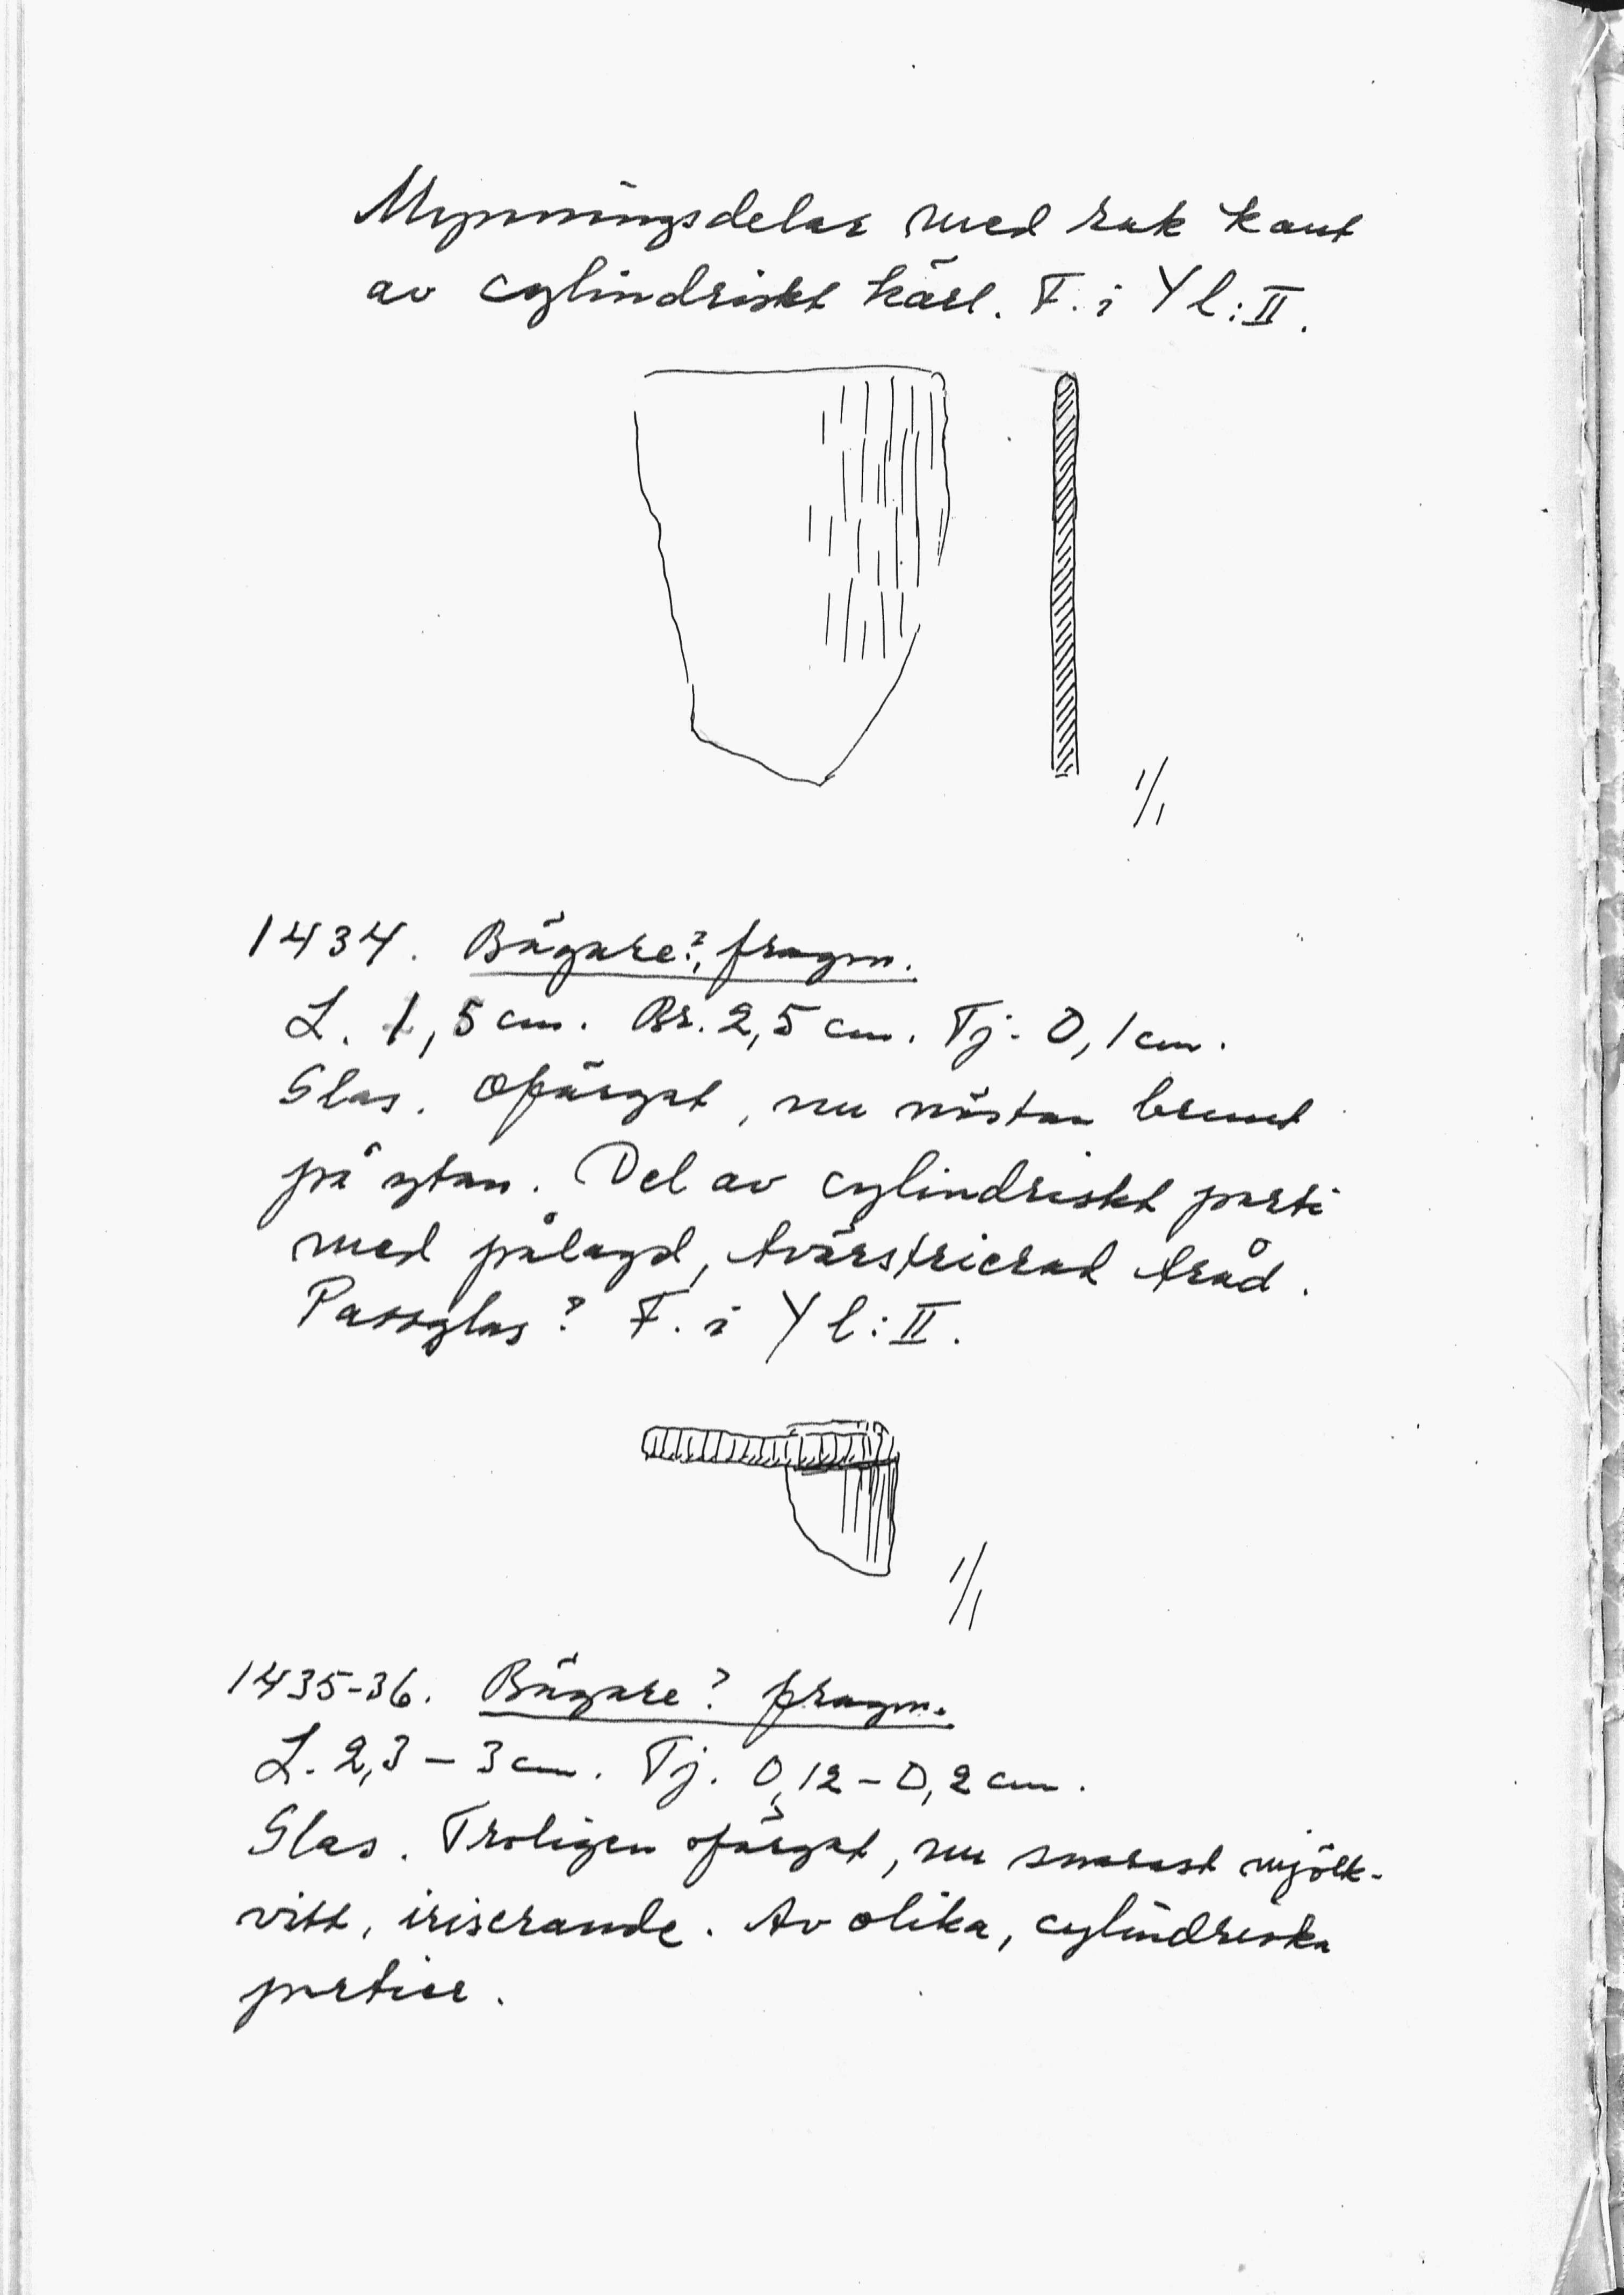 Mynningsdelar med rak kant
av cylindriskt kärl. F. i Y l:II.
1/1
1434. Bägare?, fragm.
L. 1,5 cm. Br. 2,5 cm. Tj. 0,1 cm.
Glas. Ofärgat, nu nästan brunt
på ytan. Del av cylindriskt parti
med pålagd, tvärstrierad tråd.
Passglas? F. i Y l:II.
1/1
1435-36. Bägare? fragm.
L. 2,3 – 3 cm. Tj. 0,12 – 0,2 cm.
Glas. Troligen ofärgat, nu snarast mjölk-
vitt, iriserande. Av olika, cylindriska
partier.